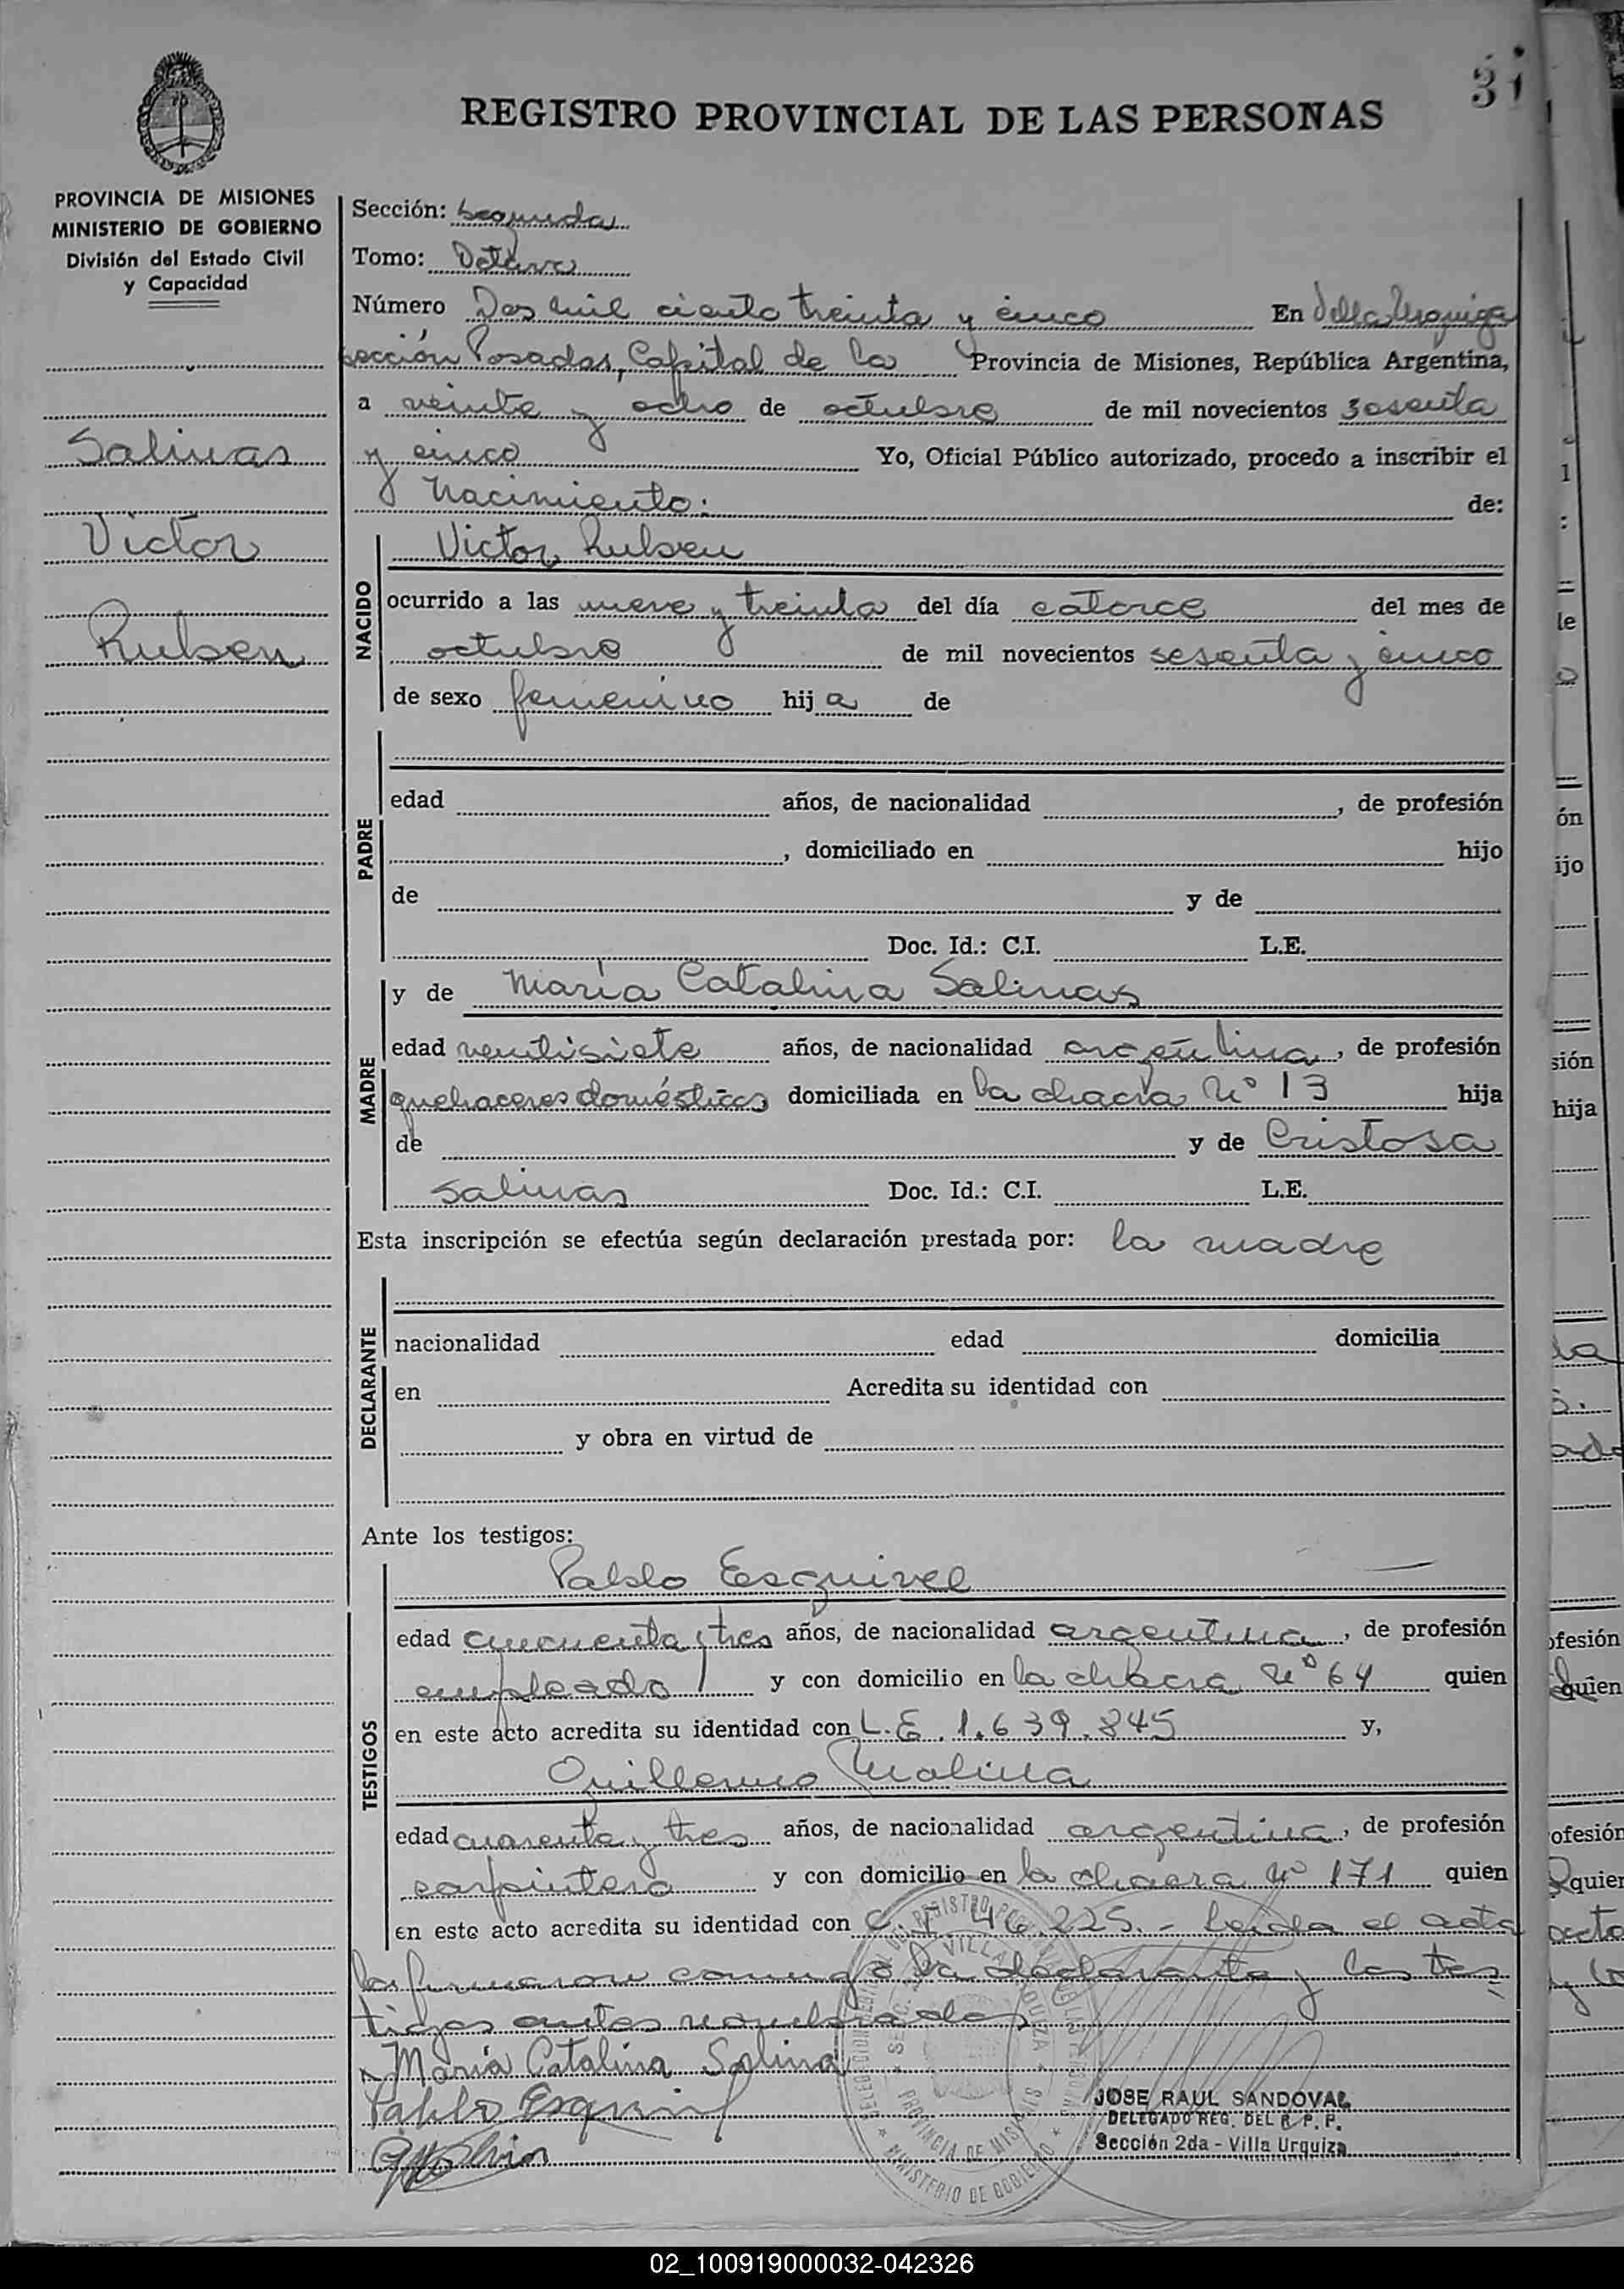 31
REGISTRO PROVINCIAL DE LAS PERSONAS
PROVINCIA DE MISIONES
MINISTERIO DE GOBIERNO
División del Estado Civil
y Capacidad
Salinas
Victor
Ruben
Sección: Segunda
Tomo: Octavo
Número Dos mil ciento treinta y cinco En Villa Urquiza
sección Posadas, Capital de la Provincia de Misiones, República Argentina,
a veinte y ocho de octubre de mil novecientos sesenta
y cinco Yo, Oficial Público autorizado, procedo a inscribir el
nacimiento: de:
NACIDO
Victor Ruben
ocurrido a las nueve y treinta del día catorce del mes de
octubre de mil novecientos sesenta y cinco
de sexo femenino hija de
PADRE
edad años, de nacionalidad , de profesión
, domiciliado en hijo
de y de
Doc. Id.: C.I. L.E.
MADRE
y de María Catalina Salinas
edad ventisiete años, de nacionalidad argentina, de profesión
quehaceres domésticos domiciliada en la chacra Nº 13 hija
de y de Cristosa
Salinas Doc. Id.: C.I. L.E.
Esta inscripción se efectúa según declaración prestada por: la madre
DECLARANTE
nacionalidad edad domicilia
en Acredita su identidad con
y obra en virtud de
Ante los testigos:
TESTIGOS
Pablo Esquivel
edad cincuenta y tres años, de nacionalidad argentina, de profesión
empleado y con domicilio en la chacra Nº 64 quien
en este acto acredita su identidad con L.E. 1.639.845 y,
Guillermo Molina
edad cuarenta y tres años, de nacionalidad argentina, de profesión
carpintero y con domicilio en la chacra Nº 171 quien
en este acto acredita su identidad con C.I. 46.225.- Leida el acta
la firmaron conmigo la declarante y los tes
tigos antes nombrados
María Catalina Salina
Pablo Esquivel
JOSE RAUL SANDOVAL
DELEGADO REG. DEL R. P. P.
Sección 2da - Villa Urquiza
02_100919000032-042326